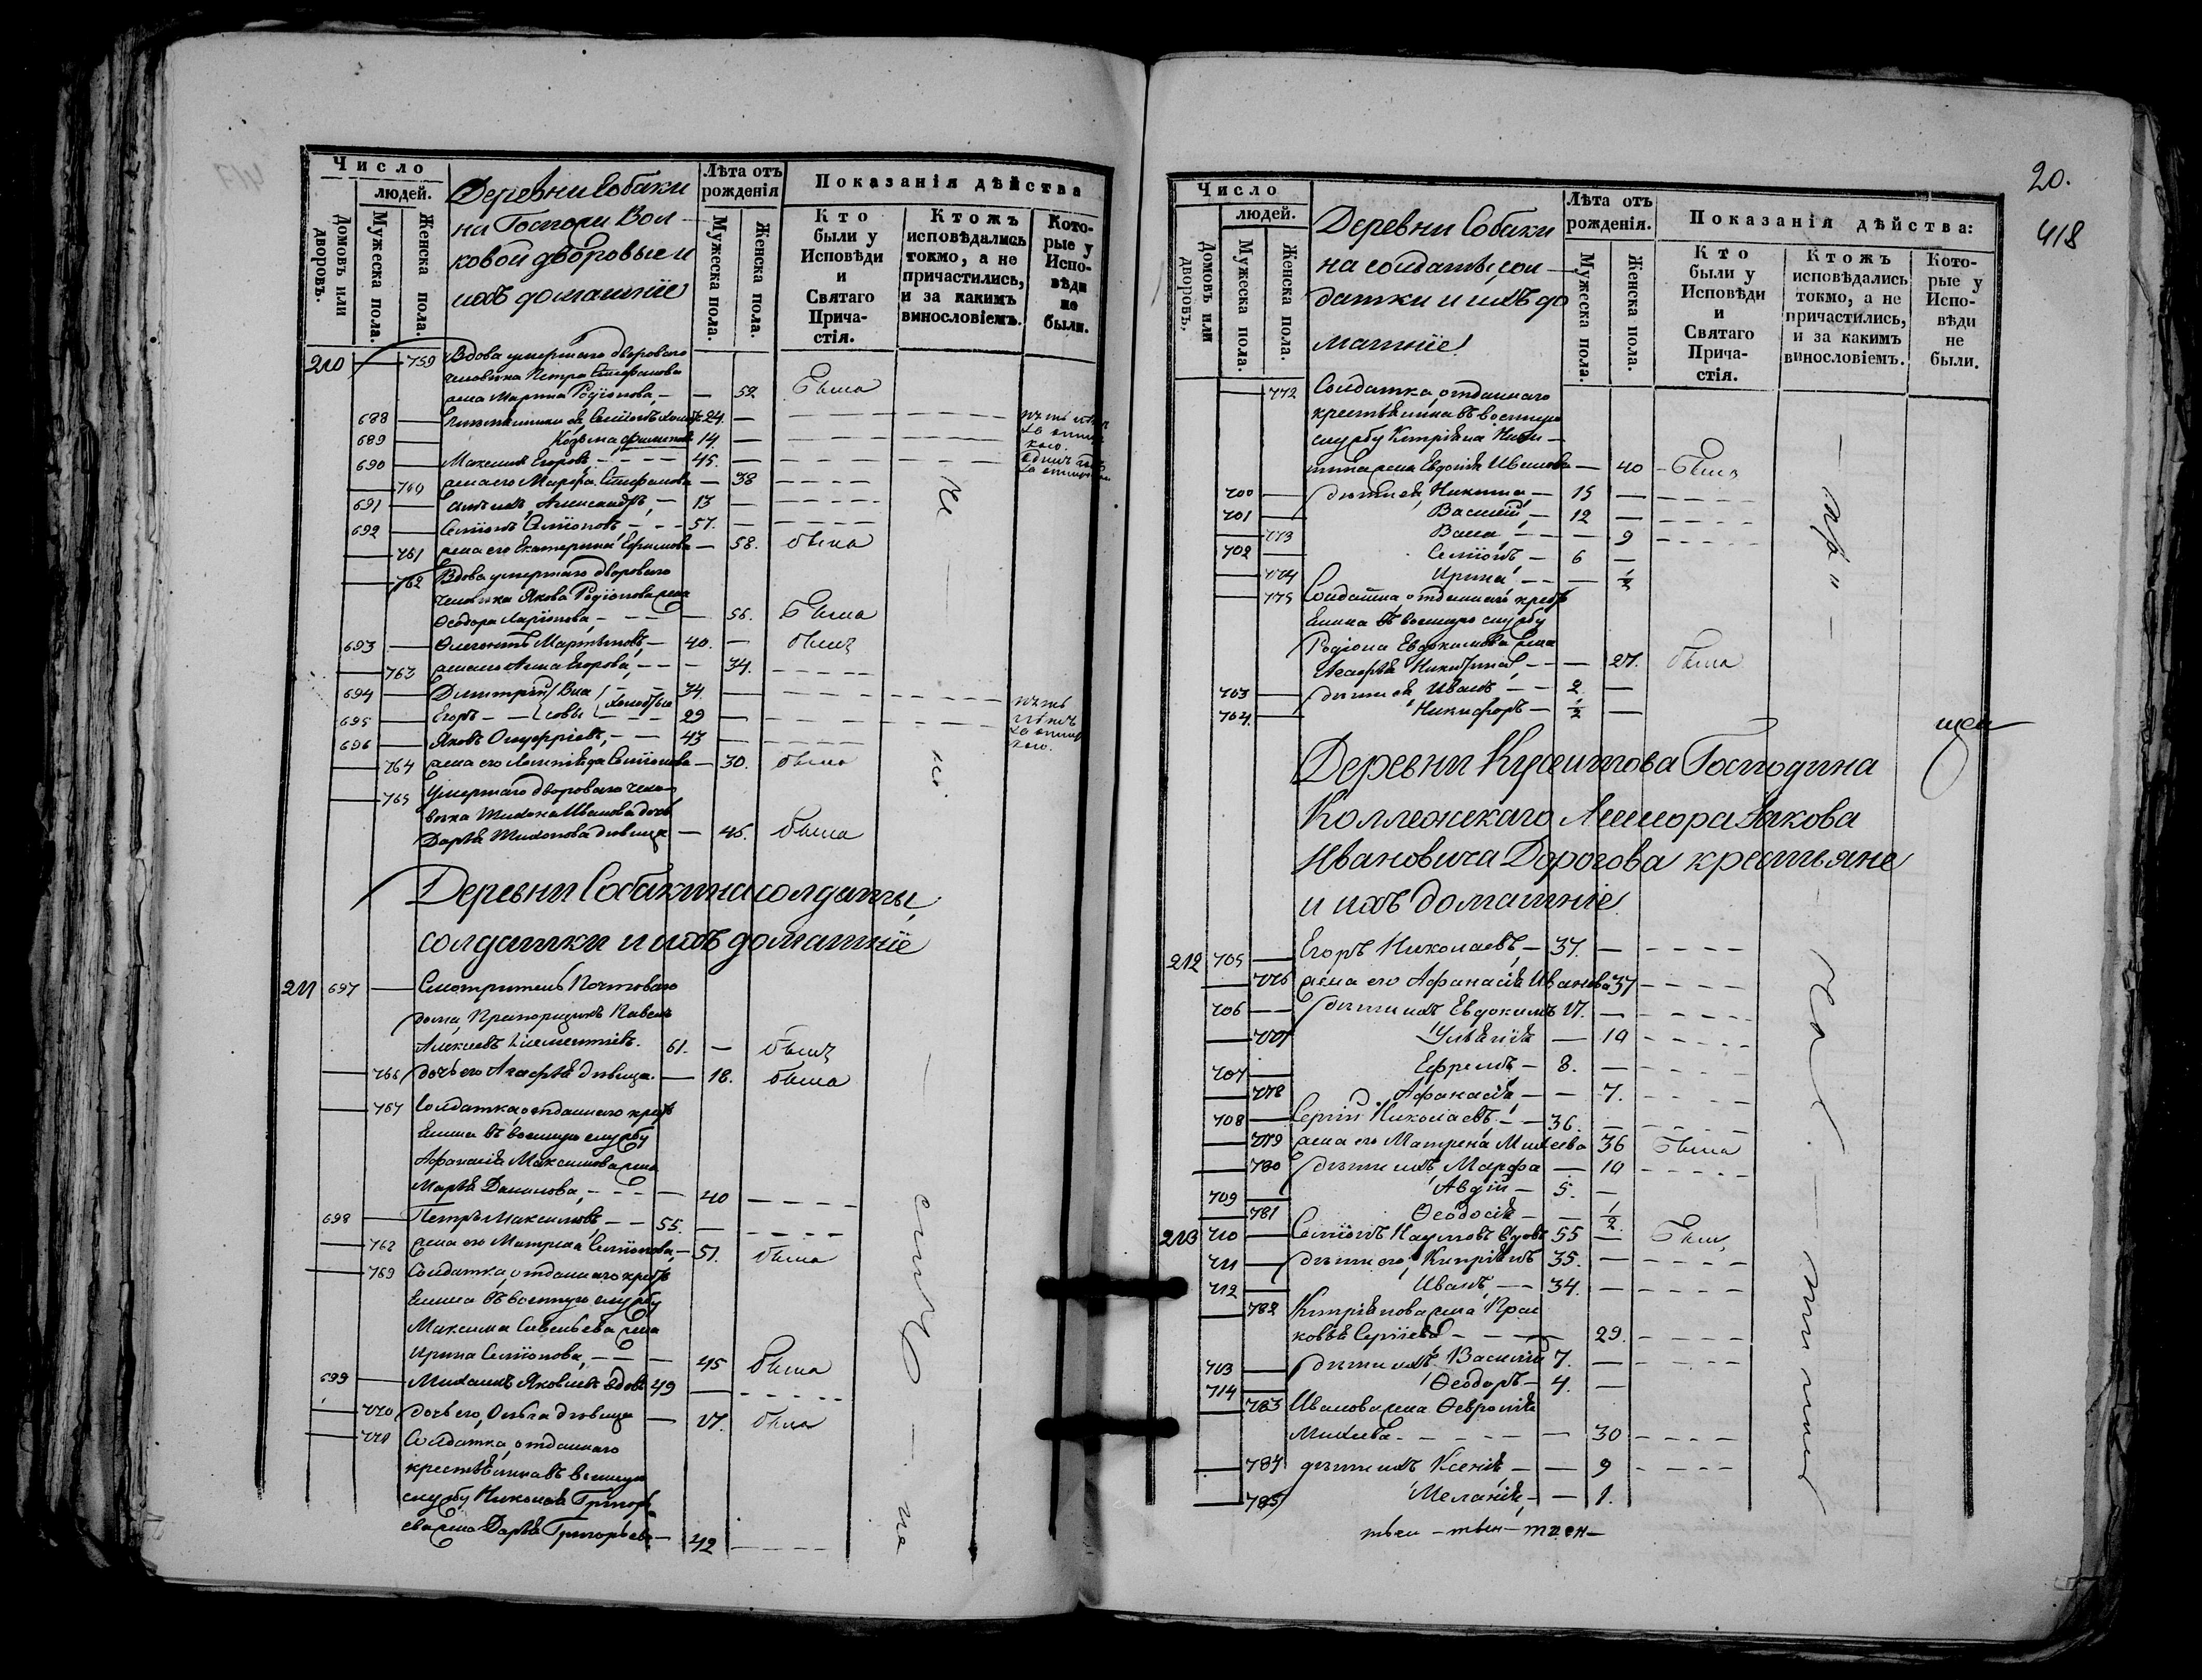 Число
людей.
Домовъ или дворовъ.
Мужеска пола.
Женска пола.
Деревни Собаки
на Госпожи Вол-
ковой дворовые и
ихъ домашніе
Лѣта отъ рожденія
Мужеска пола.
Женска пола.
Показанія дѣйства
Кто были у Исповѣди и Святаго Прича-стія.
Ктожъ исповѣдались токмо, а не причастились, и за какимъ винословіемъ.
Кото-рые у Испо-вѣди не были.
210 — 759 Вдова умершаго двороваго
человѣка Петра Стефанова
жена Марина Родіонова, — 52 Была
688 — 24. —
689 — Козьма 14. —
690 — Максимъ Егоровъ 45. —
760 жена его Марѳа Стефанова — 38
691 — Александръ, — 13 —
692 — Семіонъ Семіоновъ, 57. —
761 жена его Екатерина Ефимова — 58. была
762 Вдова умершаго двороваго
человѣка Якова Родіонова жена
Ѳеодора Ларіонова, — 56. Была
693 — Мартыновъ, — 40. — былъ
763 жена его Анна Егорова, — 34.
694 — Димитрій 34. —
695 — Егоръ 29 —
696 — Яковъ Онуфріевъ, — 43 —
764 жена его Семіонова — 30. была
765 Умершаго двороваго чело-
вѣка Тихона Иванова дочь
Дарья Тихонова дѣвица — 45. была
Деревни Собакина солдаты,
солдатки и ихъ домашніе
211 697 — Смотритель Почтоваго
дома, Прапорщикъ Павелъ
Алексѣевъ 61. — былъ
766 дочь его Агафья дѣвица. — 18. была
767 Солдатка, отданнаго крест
янина въ военную службу
Афанасія Максимова жена
Марья Данилова, — 40
698 — Петръ Максимовъ, — 55. —
768 жена его Матрена Семіонова, — 51. была
769 Солдатка, отданнаго крестъ
янина въ военную службу
Максима Савельева жена
Ирина Семіонова, — 45 была
699 — Михаилъ Яковлевъ вдовъ 49 —
770 дочь его, Ольга дѣвица — 17. была
771 Солдатка, отданнаго
крестьянина въ военную
службу Николая Григорь
ева жена Дарья Григорьева — 42
20.
418
Число
людей.
Домовъ или дворовъ.
Мужеска пола.
Женска пола.
Деревни Собаки
на солдаты, сол-
датки и ихъ до
машніе
Лѣта отъ рожденія.
Мужеска пола.
Женска пола.
Показанія дѣйства:
Кто были у Исповѣди и Святаго Прича-стія.
Ктожъ исповѣдались токмо, а не причастились, и за какимъ винословіемъ.
Кото-рые у Испо-вѣди не были.
772 Солдатка, отданнаго
крестьянина въ военную
службу Кипріяна Ники-
тина жена Евдокія Иванова — 40 — Была
700 — дѣти ея, Никита, — 15 —
701 Василій, — 12 —
773 Васса, — 9
702 — Семіонъ — 6 —
774 Ирина — 1/2
775 Солдатка, отданнаго крестъ
янина въ военную службу
Родіона Евдокимова жена
Агафья Никитина, — 27. была
703 — дѣти ея Иванъ — 2. —
704. — Никифоръ — 1/2 —
Деревни Господина
Коллежскаго Ассесора Іакова
Ивановича Дорогова крестьяне
и ихъ домашніе
212 705 — Егоръ Николаевъ, — 37. —
776 жена его Афанасія Иванова 37
706 — дѣти ихъ Евдокимъ 17. —
777 Ульянія — 10
707 — Ефремъ — 8. —
778 Афанасія, — 7.
708 — Сергій Николаевъ, — 36. —
779 жена его Матрена Михеева 36 Была
780 дѣти ихъ, Марѳа — 10
709 — Авдій — 5. —
781 Ѳеодосія — 1/2.
213 710 — Семіонъ Наумовъ вдовъ 55 — Былъ
711 — дѣти его, Кипріянъ 35. —
712 — Иванъ, — 34. —
782 Кипріянова жена Прас
ковья Сергіева — 29.
713 — дѣти ихъ Василій 7. —
714 — Ѳеодоръ — 4. —
783 Иванова жена Ѳевронія
Михеева — 30
784 дѣти ихъ Ксенія, — 9
785 Меланія, — 1.